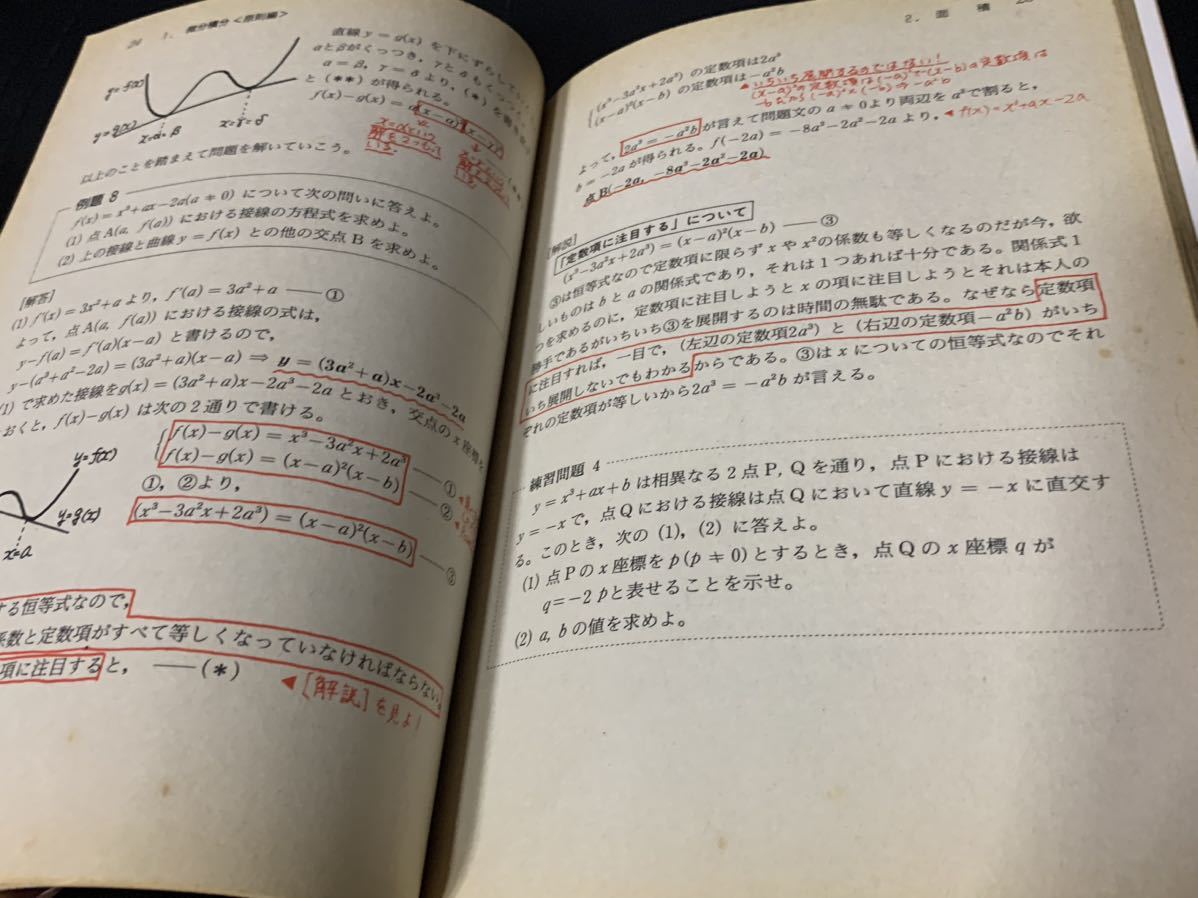 24 1. 微分積分<原則編>
直線 y=g(x) を下にずらし
αとβがくっつき, γとδもくっつ
α=β, γ=δ より, (*)を書き
と (**) が得られる。
f(x)-g(x)=
y=f(x)
y=g(x)
x=α=β
x=γ=δ
以上のことを踏まえて問題を解いていこう。
例題 8
f(x)=x³+ax-2a(a≠0) について次の問いに答えよ。
(1) 点A(a, f(a))における接線の方程式を求めよ。
(2) 上の接線と曲線 y=f(x) との他の交点Bを求めよ。
[解答]
(1) f'(x)=3x²+a より, f'(a)=3a²+a ——①
よって, 点A(a, f(a))における接線の式は,
y-f(a)=f'(a)(x-a) と書けるので,
y-(a³+a²-2a)=(3a²+a)(x-a) ⇒ y=(3a²+a)x-2a³-2a
(1)で求めた接線をg(x)=(3a²+a)x-2a³-2a とおき, 交点のx座標を
おくと, f(x)-g(x) は次の2通りで書ける。
f(x)-g(x)=x³-3a²x+2a³ ——①
f(x)-g(x)=(x-a)²(x-b) ——②
①, ②より,
(x³-3a²x+2a³)=(x-a)²(x-b) ——③
y=f(x)
y=g(x)
x=a
する恒等式なので,
係数と定数項がすべて等しくなっていなければならない。
項に注目すると, ——(*)
◀[解説]を見よ!
2. 面積
(x³-3a²x+2a³) の定数項は2a³
(x-a)²(x-b) の定数項は-a²b
▲いちいち展開するのではない!
(x-a)²の定数項は(-a)²で(x-b)の定数項は
-bだから(-a)²×(-b)⇒-a²b
よって, 2a³=-a²b が言えて問題文の a≠0より両辺をa²で割ると,
b=-2a が得られる。f(-2a)=-8a³-2a²-2a より, ◀f(x)=x³+ax-2a
点B(-2a, -8a³-2a²-2a)
[解説]
「定数項に注目する」について
(x³-3a²x+2a³)=(x-a)²(x-b) ——③
③は恒等式なので定数項に限らずxやx²の係数も等しくなるのだが今, 欲
しいものはbとaの関係式であり, それは1つあれば十分である。関係式1
つを求めるのに, 定数項に注目しようとxの項に注目しようとそれは本人の
勝手であるがいちいち③を展開するのは時間の無駄である。なぜなら定数項
に注目すれば, 一目で, (左辺の定数項2a³) と (右辺の定数項-a²b) がいち
いち展開しないでもわかるからである。③はxについての恒等式なのでそれ
ぞれの定数項が等しいから2a³=-a²bが言える。
練習問題 4
y=x³+ax+bは相異なる2点P, Qを通り, 点Pにおける接線は
y=-xで, 点Qにおける接線は点Qにおいて直線 y=-x に直交す
る。このとき, 次の (1), (2) に答えよ。
(1) 点Pのx座標をp(p≠0)とするとき, 点Qのx座標qが
q=-2pと表せることを示せ。
(2) a, bの値を求めよ。